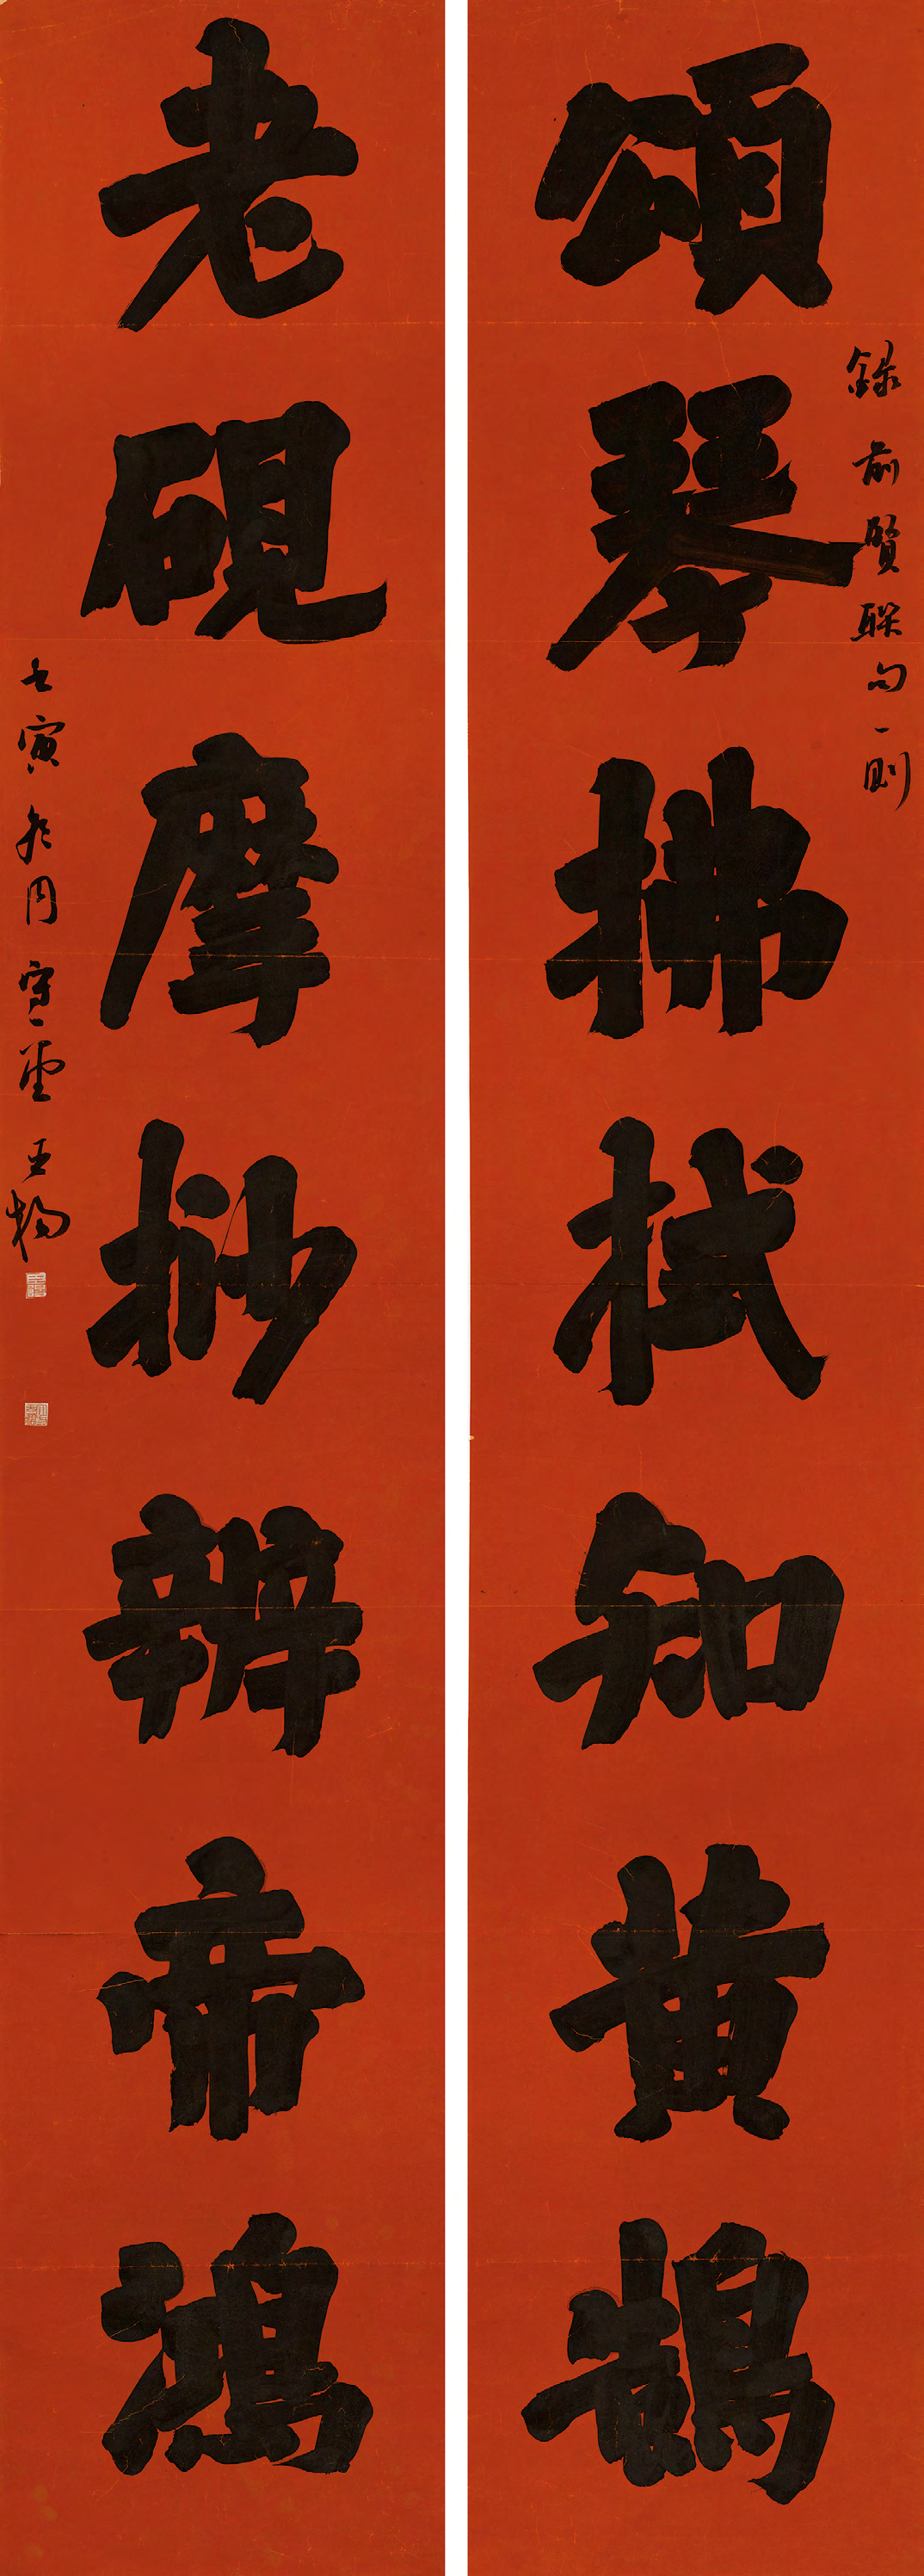 頌琴拂拭知黃鵠
錄前賢聯句一則
老硯摩抄辨帝鴻
壬寅冬月雪堂王楊